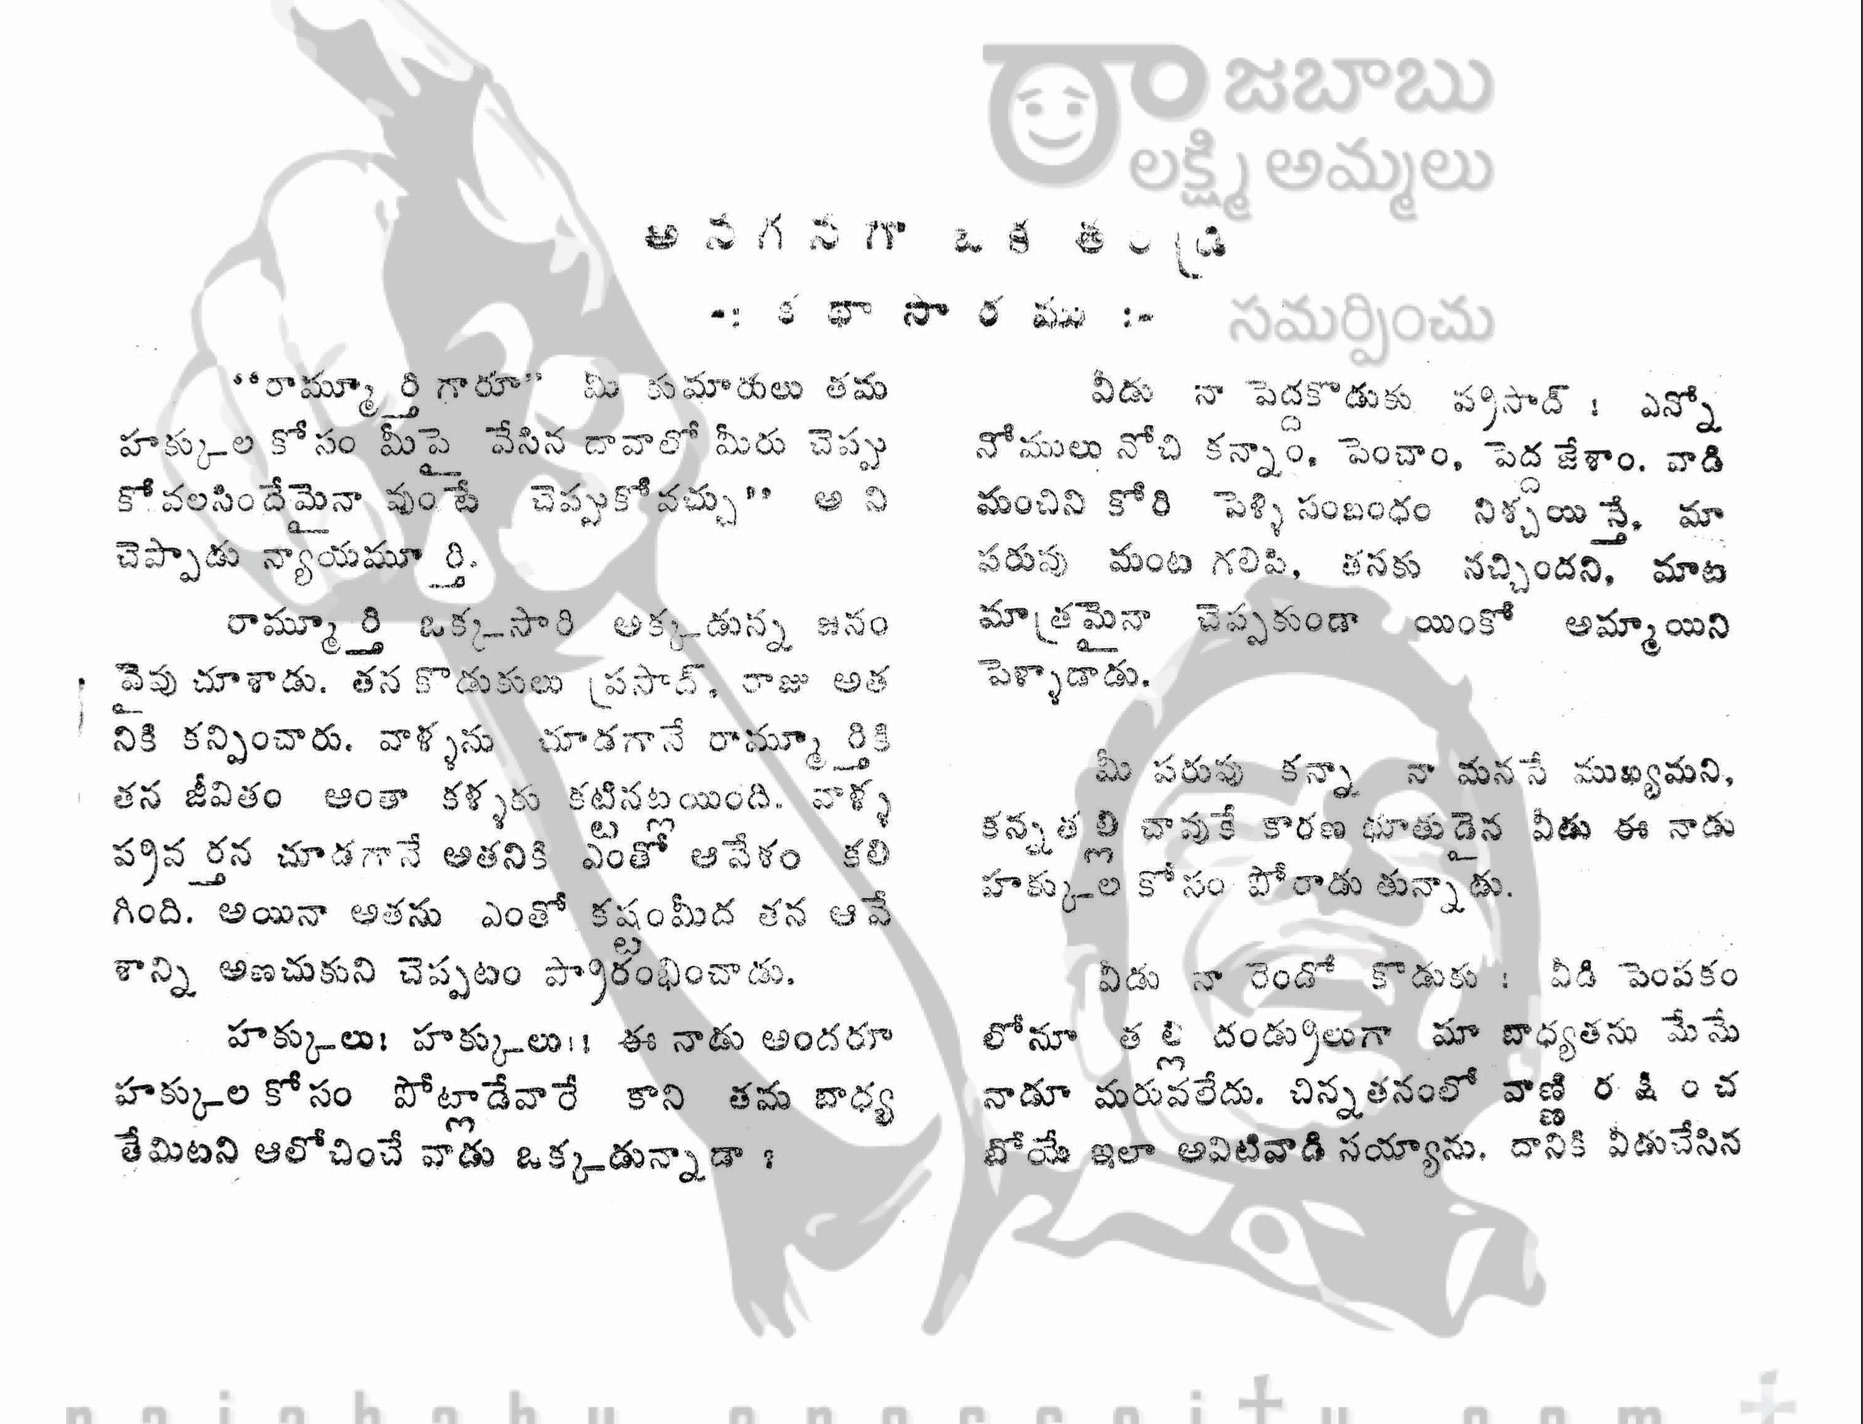 రాజబాబు
లక్ష్మి అమ్మలు
అనగనగా ఒక తండ్రి
-: కథాసారము :-
సమర్పించు
"రామ్మూర్తి గారూ" మీ కుమారులు తమ
హక్కుల కోసం మీపై వేసిన దావాలో మీరు చెప్పు
కోవలసిందేమైనా వుంటే చెప్పుకోవచ్చు" అ ని
చెప్పాడు న్యాయమూర్తి.
రామ్మూర్తి ఒక్కసారి అక్కడున్న జనం
వైపు చూశాడు. తన కొడుకులు ప్రసాద్, రాజు అత
నికి కన్పించారు. వాళ్ళను చూడగానే రామ్మూర్తికి
తన జీవితం అంతా కళ్ళకు కట్టినట్లయింది. వాళ్ళ
ప్రవర్తన చూడగానే అతనికి ఎంతో ఆవేశం కలి
గింది. అయినా అతను ఎంతో కష్టంమీద తన ఆవే
శాన్ని అణచుకుని చెప్పటం ప్రారంభించాడు.
హక్కులు! హక్కులు!! ఈ నాడు అందరూ
హక్కుల కోసం పోట్లాడేవారే కాని తమ బాధ్య
తేమిటని ఆలోచించే వాడు ఒక్కడున్నాడా ?
వీడు నా పెద్దకొడుకు ప్రసాద్ ! ఎన్నో
నోములు నోచి కన్నాం, పెంచాం, పెద్ద జేశాం. వాడి
మంచిని కోరి పెళ్ళి సంబంధం నిశ్చయిస్తే, మా
పరువు మంట గలిపి, తనకు నచ్చిందని, మాట
మాత్రమైనా చెప్పకుండా యింకో అమ్మాయిని
పెళ్ళాడాడు.
మీ పరువు కన్నా నా మనసే ముఖ్యమని,
కన్నతల్లి చావుకే కారణ భూతుడైన వీడు ఈ నాడు
హక్కుల కోసం పోరాడు తున్నాడు.
వీడు నా రెండో కొడుకు ! వీడి పెంపకం
లోనూ తల్లి దండ్రులుగా మా బాధ్యతను మేమే
నాడూ మరువలేదు. చిన్నతనంలో వాణ్ణి ర క్షిం చ
బోయే ఇలా అవిటివాడి నయ్యాను. దానికి వీడుచేసిన